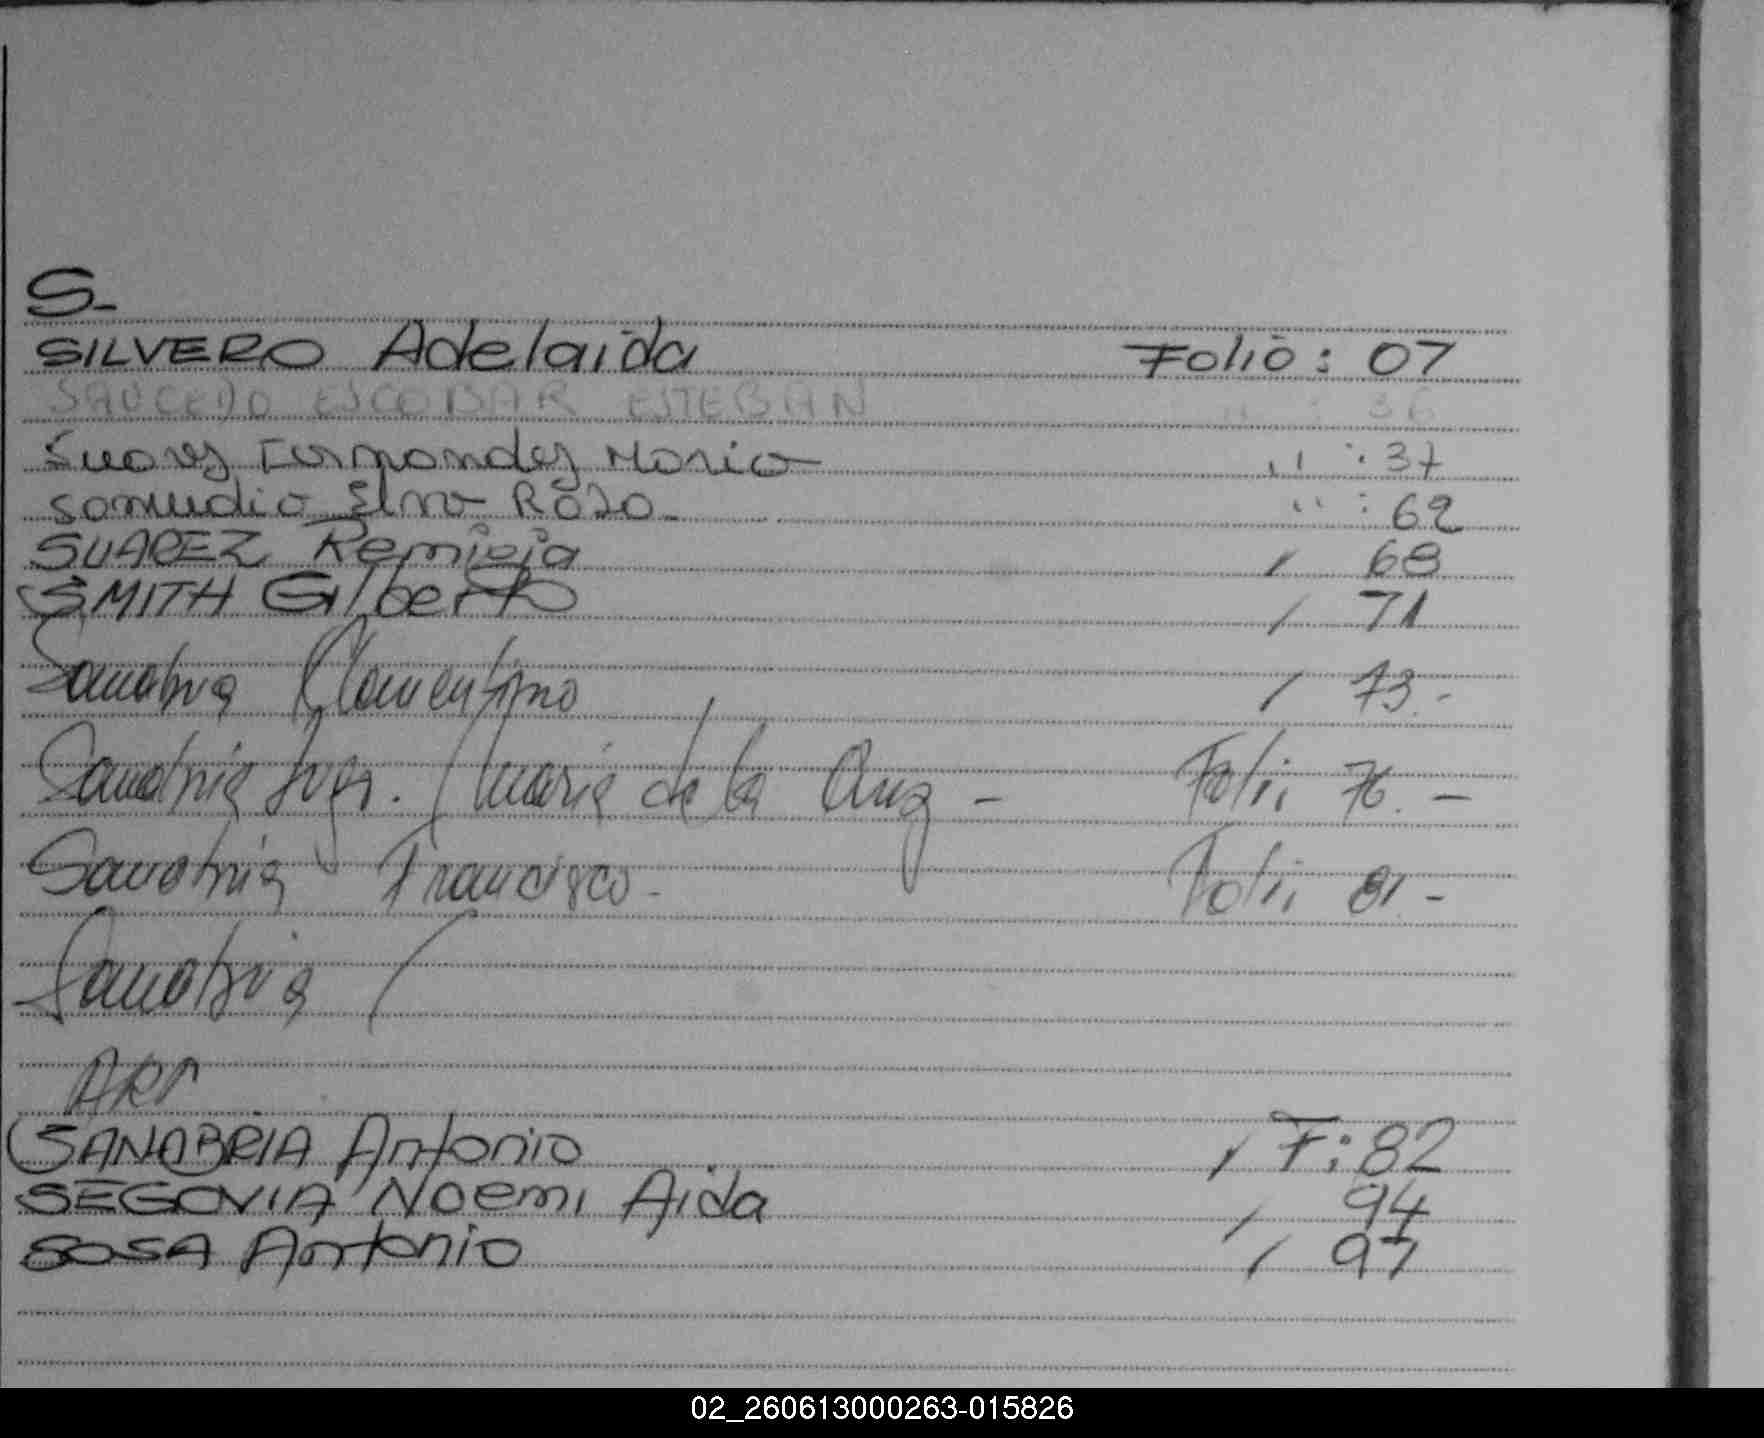 S-
SILVERO Adelaida Folio: 07
SAUCEDO ESCOBAR ESTEBAN " : 36
Suarez Fernandez Maria " : 37
Samudio Elva Rosa - " : 62
SUAREZ Remigia / 68
SMITH Gilberto / 71
Sanabria Clementino / 73.-
Sanabria Maria de la Cruz - Folio 76.-
Sanabria Francisco - Folio 81-
Sanabria
SANABRIA Antonio / F: 82
SEGOVIA Noemi Aida / 94
SOSA Antonio / 97
02_260613000263-015826